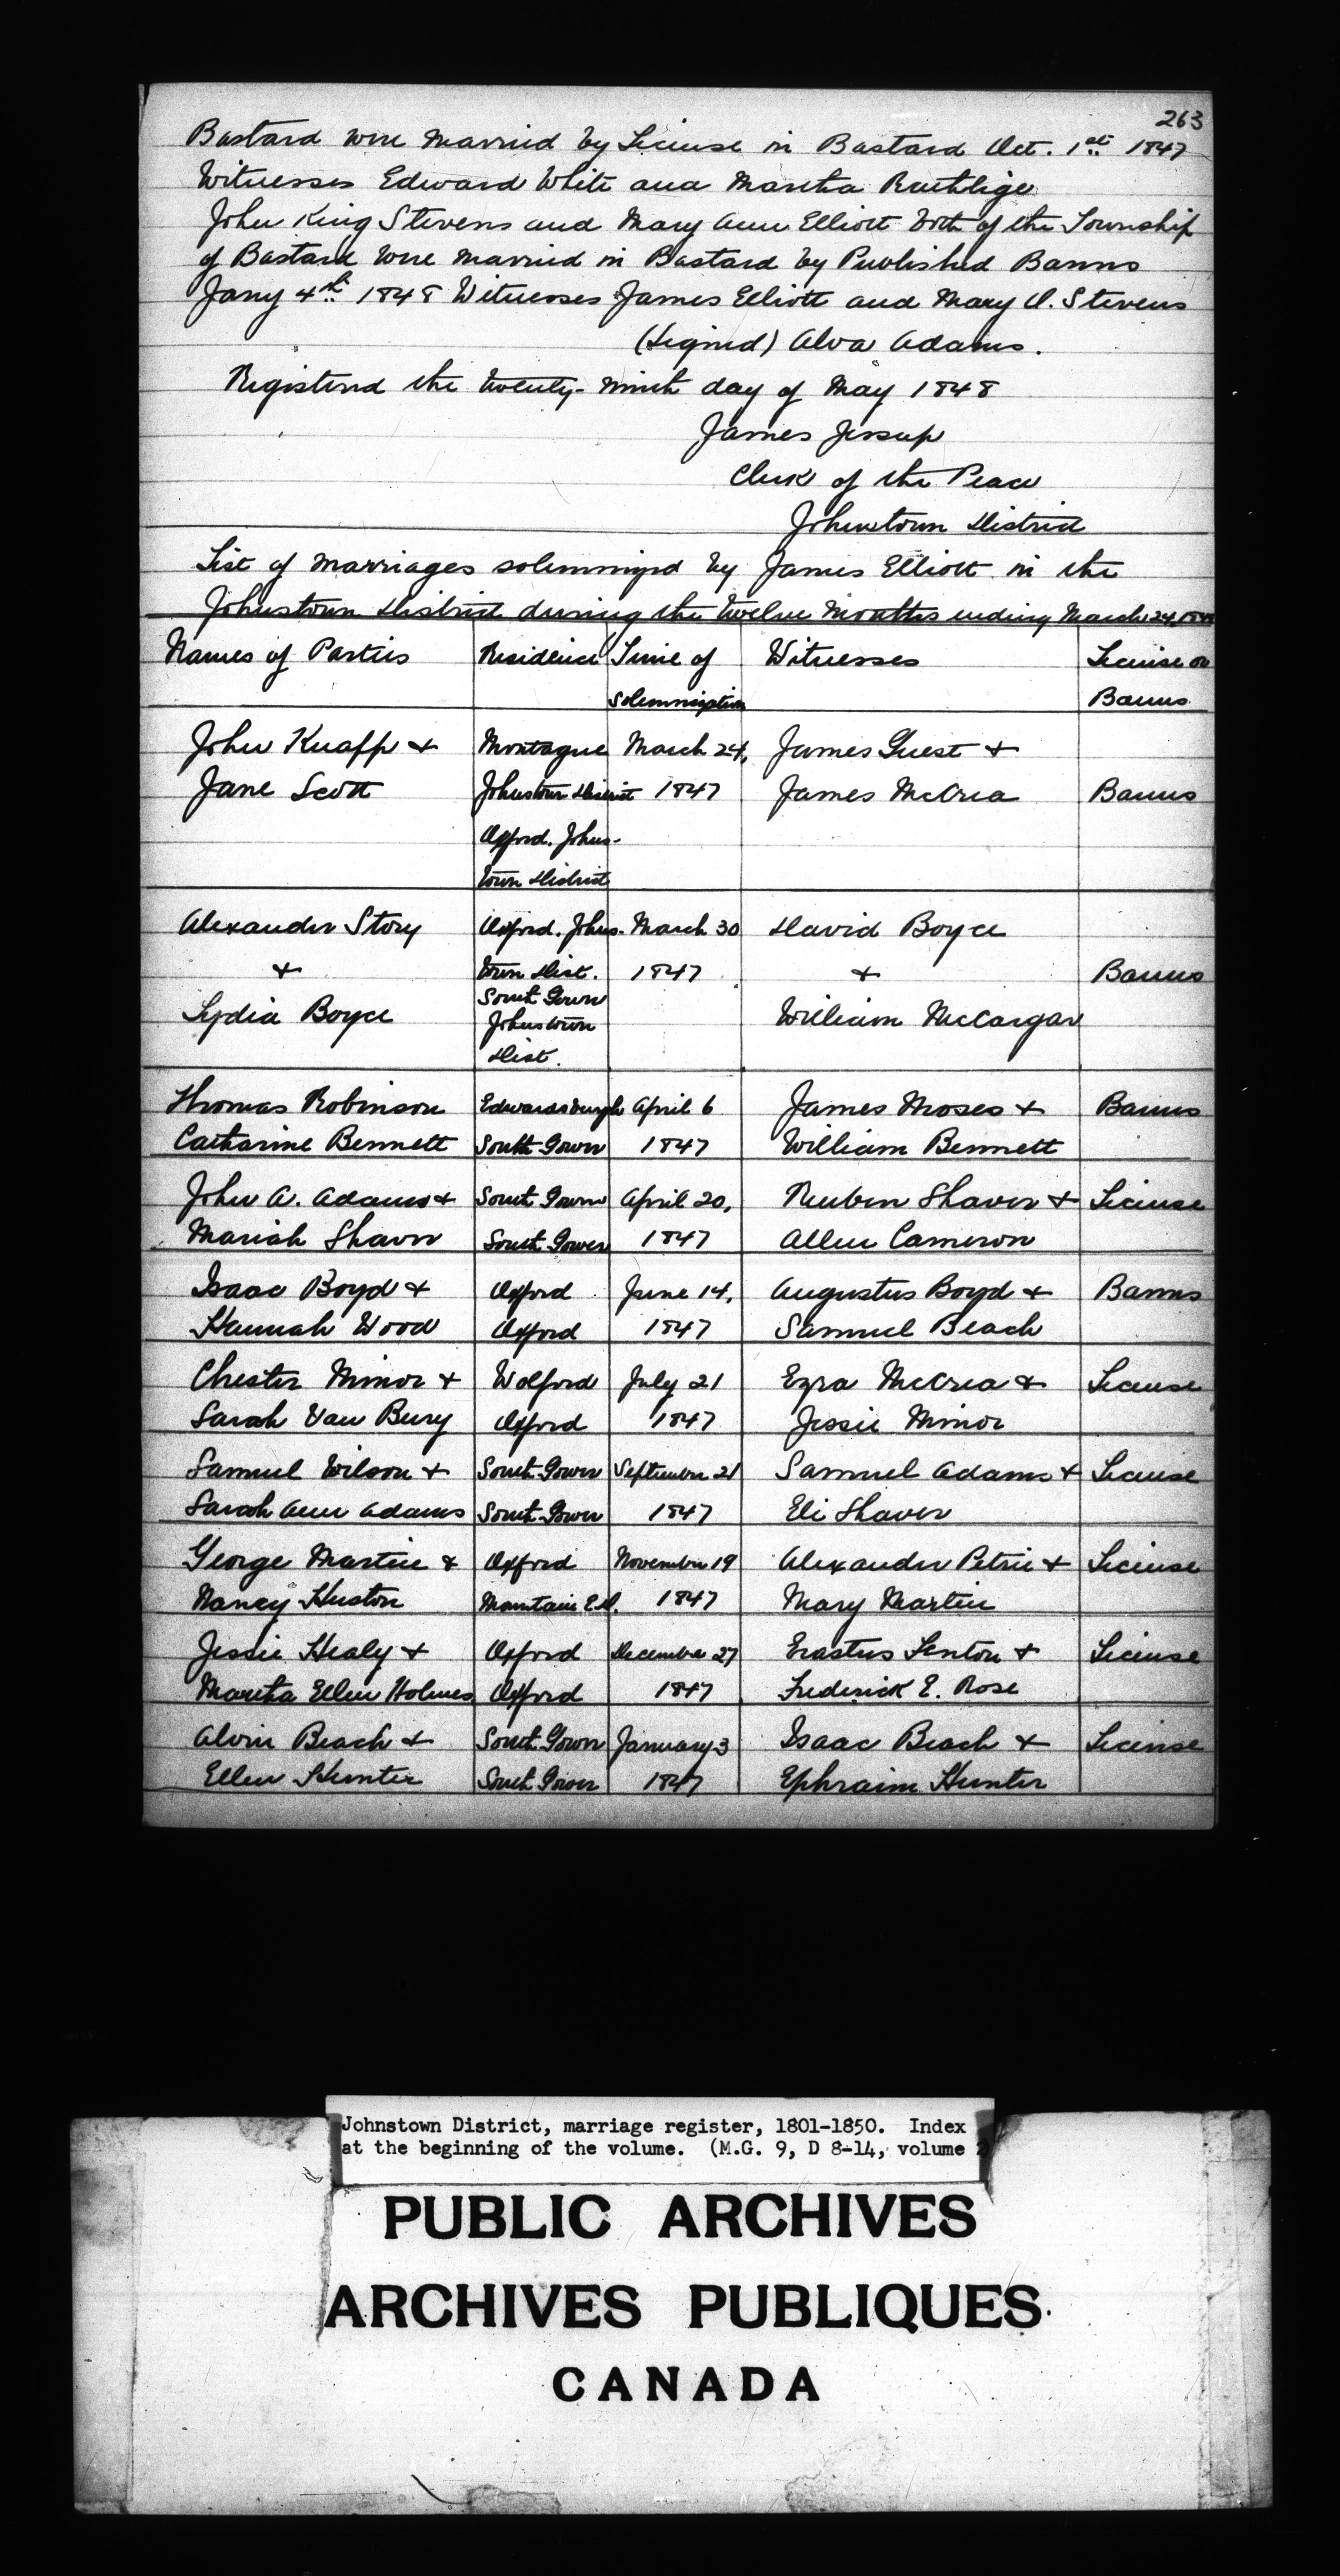 263
Bastard were married by License in Bastard Oct. 1st 1847
Witnesses Edward White and Martha Ruthlige
John King Stevens and Mary Ann Elliott both of the Township
of Bastard were married in Bastard by Published Banns
Jany 4th 1848 Witnesses James Elliott and Mary A. Stevens
(Signed) Alva Adams.
Registered the twenty-ninth day of May 1848
James Jessup
Clerk of the Peace
Johnstown District
List of marriages solemnized by James Elliott in the
Johnstown District during the twelve months ending March 24, 1848
Names of Parties Residence Time of Witnesses License or
Solemnization Banns
John Knapp & Montague March 24, James Guest &
Jane Scott Johnstown District 1847 James McCrea Banns
Oxford. Johns-
town District
Alexander Story Oxford. Johns- March 30 David Boyce
& town Dist. 1847 & Banns
South Gower
Lydia Boyce Johnstown William McCargar
Dist.
Thomas Robinson Edwardsburgh April 6 James Moses & Banns
Catharine Bennett South Gower 1847 William Bennett
John A. Adams & South Gower April 20, Reuben Shaver & License
Mariah Shaver South Gower 1847 Allen Cameron
Isaac Boyd & Oxford June 14, Augustus Boyd & Banns
Hannah Wood Oxford 1847 Samuel Beach
Chester Minor & Wolford July 21 Ezra McCrea & License
Sarah Van Bury Oxford 1847 Jessie Minor
Samuel Wilson & South Gower September 21 Samuel Adams & License
Sarah Ann Adams South Gower 1847 Eli Shaver
George Martin & Oxford November 19 Alexander Petrie & License
Nancy Huston Mountain E.D. 1847 Mary Martin
Jessie Healy & Oxford December 27 Erastus Lenton & License
Martha Ellen Holmes Oxford 1847 Frederick E. Rose
Alvin Beach & South Gower January 3 Isaac Beach & License
Ellen Hunter South Gower 1847 Ephraim Hunter
Johnstown District, marriage register, 1801-1850. Index
at the beginning of the volume. (M.G. 9, D 8-14, volume
PUBLIC ARCHIVES
ARCHIVES PUBLIQUES
CANADA